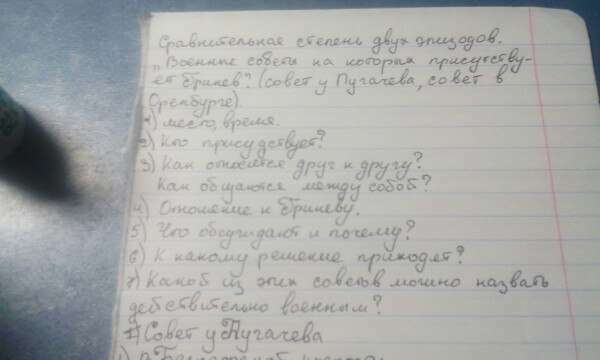 Сравнительная степень двух эпизодов.
„Военные советы на которых присутству-
ет Гринев". (совет у Пугачева, совет в
Оренбурге).
1) место, время.
2) Кто присудствует?
3) Как относятся друг к другу?
Как общаются между собой?
4) Отношение к Гриневу.
5) Что обсуждают и почему?
6) К какому решение приходят?
7) Какой из этих советов можно назвать
действительно военным?
Совет у Пугачева
1) В